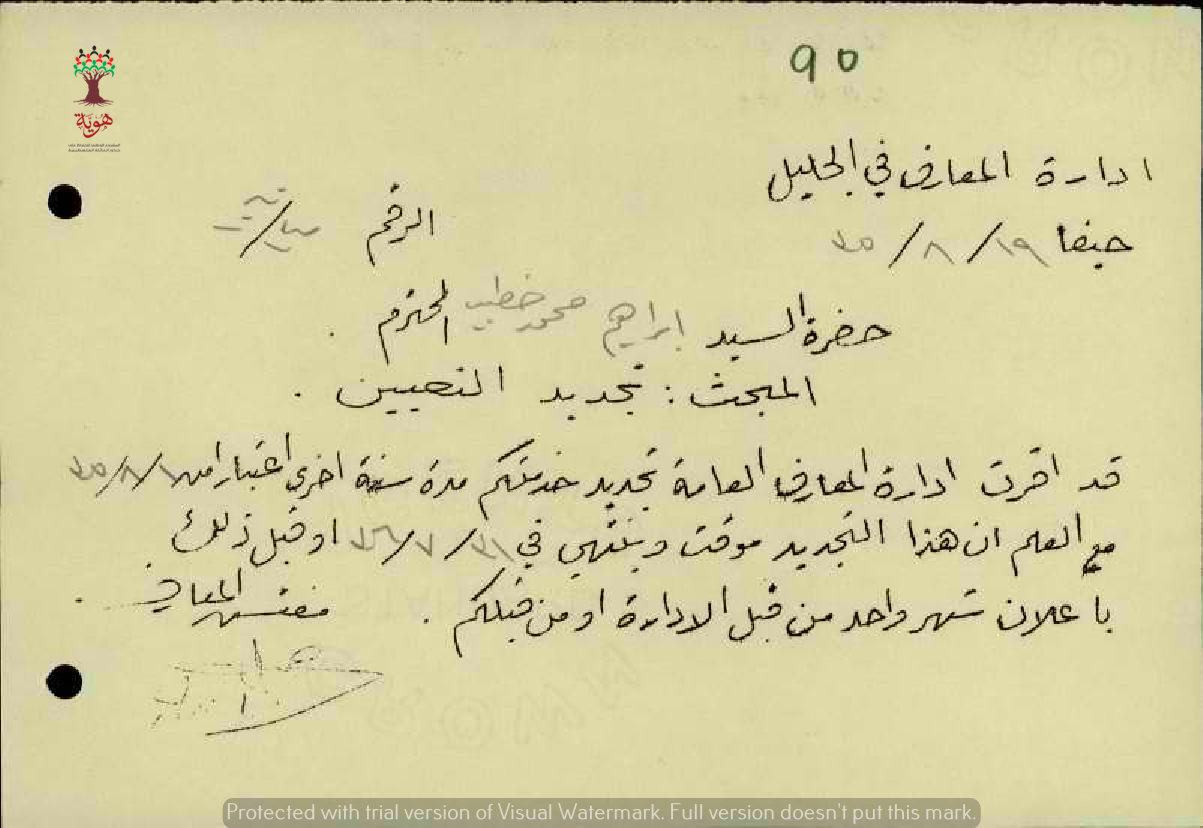 90
هوية
ادارة المعارف في الجليل
حيفا ١٩/٨/٤٥
الرقم
حضرة السيد ابراهيم محمد خطيب المحترم .
المبحث : تجديد التعيين .
قد اقرت ادارة المعارف العامة تجديد خدمتكم مدة سنة اخرى اعتبارا من ١/٨/٤٥
مع العلم ان هذا التجديد موقت وينتهي في ٣١/٧/٤٦ او قبل ذلك .
باعلان شهر واحد من قبل الادارة او من قبلكم .
مفتش المعارف .
Protected with trial version of Visual Watermark. Full version doesn't put this mark.